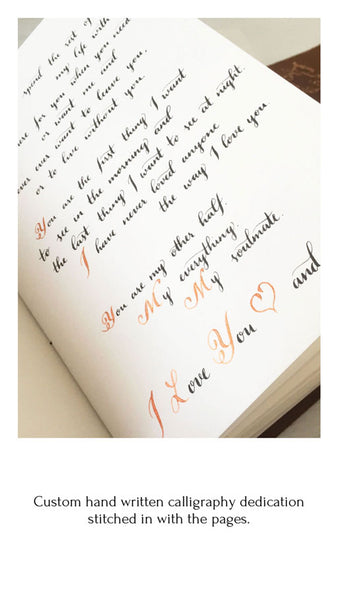 spend the rest of
my life with
are for you when you need
or want me and
ever ever want to leave you.
or to live without you.
You are the first thing I want
to see in the morning and
the last thing I want to see at night.
I have never loved anyone
the way I love you
You are my other half.
My everything
My soulmate.
I Love You and
Custom hand written calligraphy dedication
stitched in with the pages.